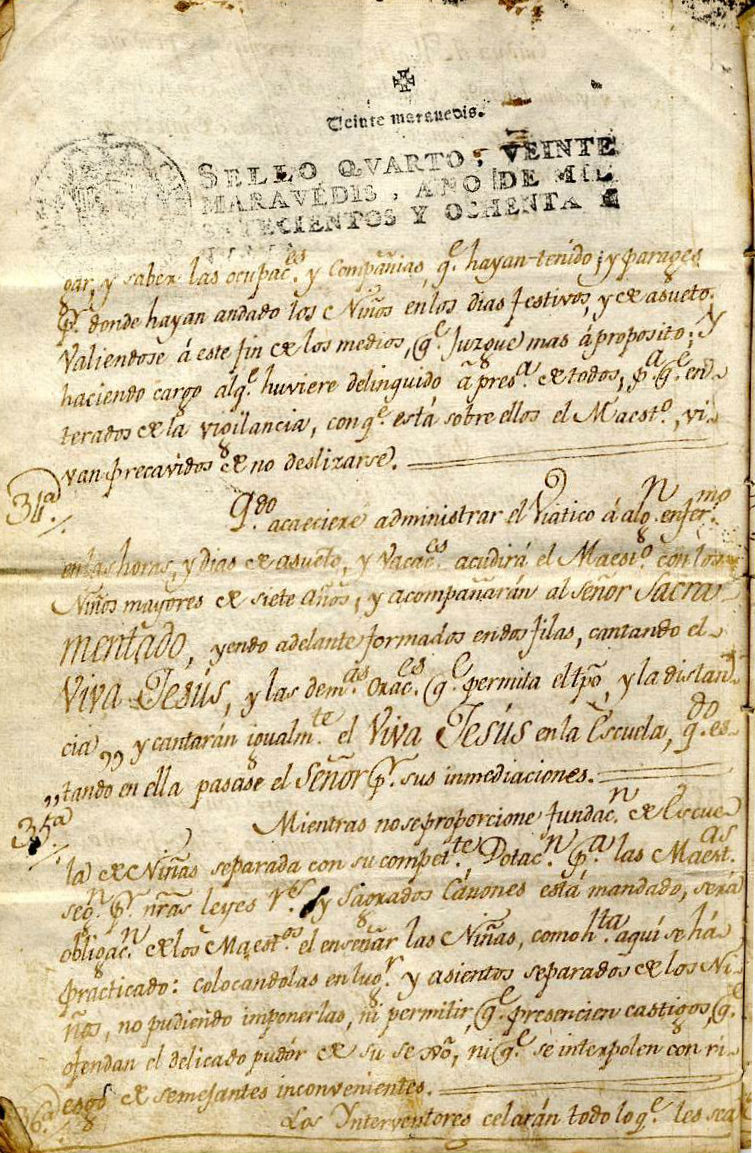 Veinte maravedis.
SELLO QVARTO, VEINTE
MARAVEDIS, AÑO DE MIL
SETECIENTOS Y OCHENTA
gar, y saber las ocupac.es y Compañias, q.e hayan tenido, y parages
p.r donde hayan andado los Niños en los dias festivos, y de asueto.
Valiendose á este fin de los medios, q.e Juzgue mas á proposito; y
haciendo cargo al q.e huviere delinquido á pres.a de todos, p.a q.e en-
terados de la vigilancia, con q.e está sobre ellos el Maest.o, vi-
van precavidos de no deslizarse.
34a
Q.do acaeciere administrar el Viatico á alg.n enfer.mo
en las horas, y dias de asueto, y Vacac.es acudirá el Maest.o con los
Niños mayores de siete años, y acompañarán al Señor Sacra-
mentado, yendo adelante formados en dos filas, cantando el
Viva Jesús, y las dem.as Orac.es q.e permita el tpo, y la distan-
cia,, y cantarán igualm.te el Viva Jesús en la Escuela, q.do es-
,,tando en ella pasase el Señor p.r sus inmediaciones.
35a
Mientras no se proporcione fundac.n de Escue-
la de Niñas separada con su compet.te Dotac.n p.a las Maest.as
seg.n p.r nras leyes r.s y Sagrados Cánones está mandado, será
obligac.n de los Maest.os el enseñar las Niñas, como h.ta aquí se há
practicado: colocandolas en lug.r y asientos separados de los Ni-
ños, no pudiendo imponerlas, ni permitir, q.e presencien castigos, q.e
ofendan el delicado pudór de su sexo, ni q.e se interpolen con ri-
esgo de semejantes inconvenientes.
36a
Los Ynterventores celarán todo lo q.e les sea